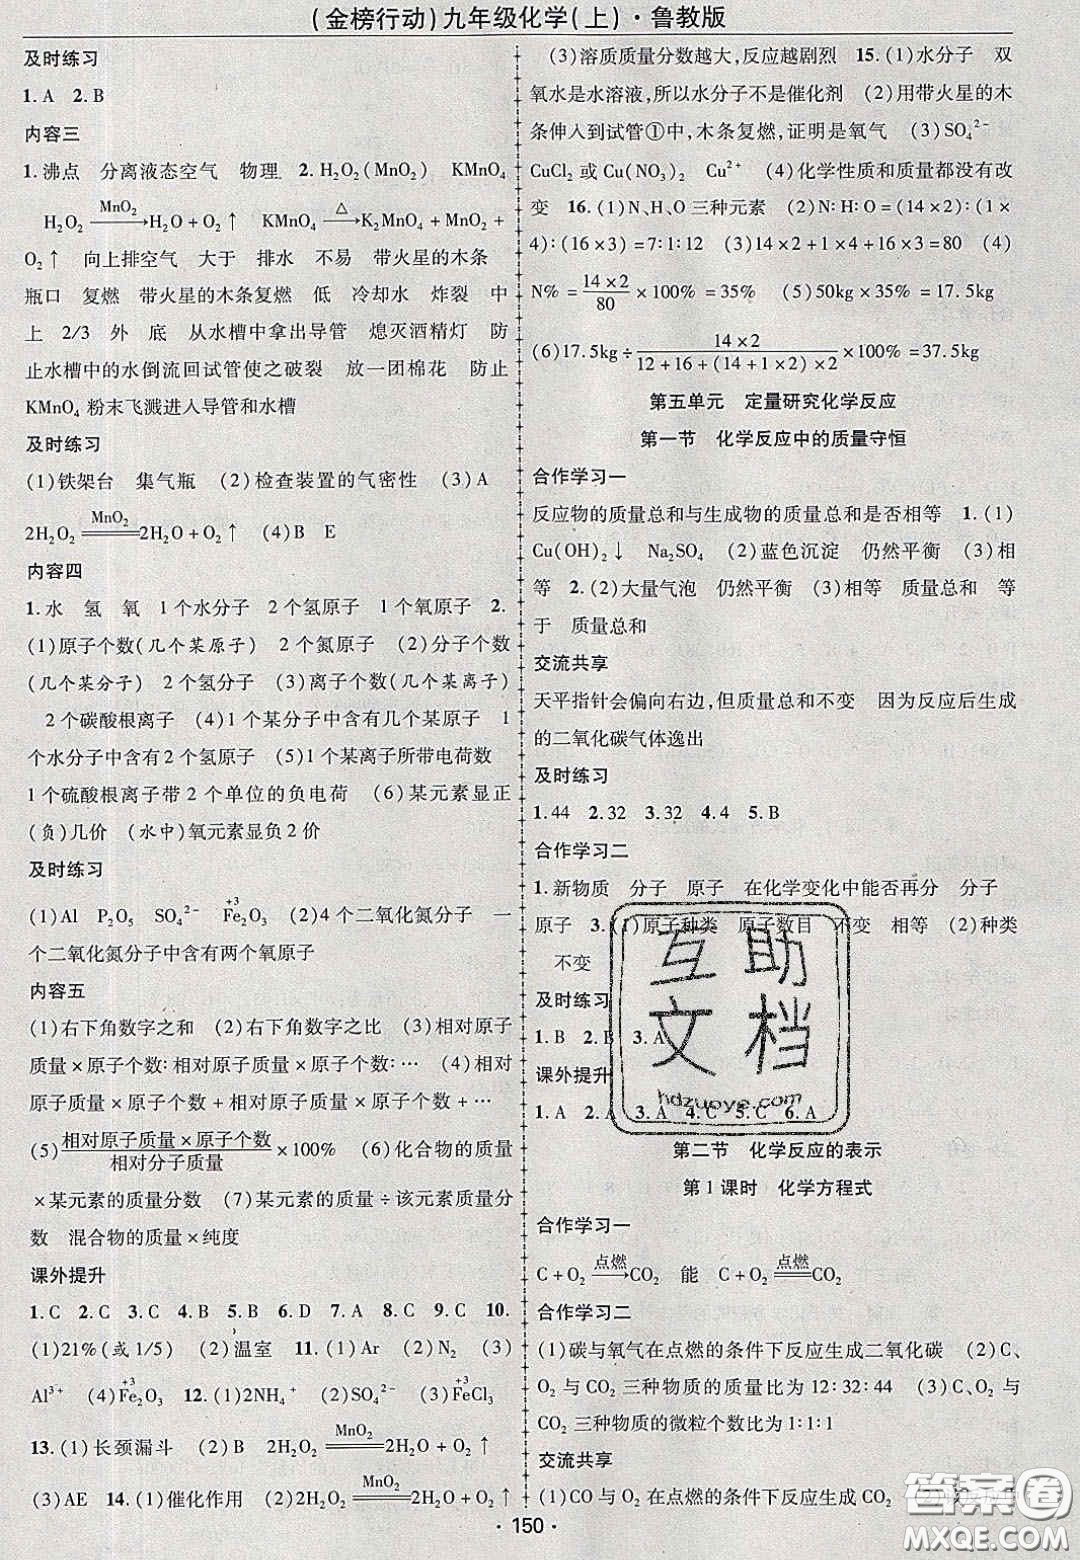 (金榜行动)九年级化学(上)·鲁教版
及时练习
1.A 2.B
内容三
1.沸点 分离液态空气 物理 2.H₂O₂(MnO₂) KMnO₄
H₂O₂ —MnO₂→ H₂O + O₂↑ KMnO₄ —△→ K₂MnO₄ + MnO₂ +
O₂↑ 向上排空气 大于 排水 不易 带火星的木条
瓶口 复燃 带火星的木条复燃 低 冷却水 炸裂 中
上 2/3 外 底 从水槽中拿出导管 熄灭酒精灯 防
止水槽中的水倒流回试管使之破裂 放一团棉花 防止
KMnO₄ 粉末飞溅进入导管和水槽
及时练习
(1)铁架台 集气瓶 (2)检查装置的气密性 (3)A
2H₂O₂ =MnO₂= 2H₂O + O₂↑ (4)B E
内容四
1.水 氢 氧 1个水分子 2个氢原子 1个氧原子 2.
(1)原子个数(几个某原子) 2个氮原子 (2)分子个数
(几个某分子) 2个氢分子 (3)离子个数(几个某离子)
2个碳酸根离子 (4)1个某分子中含有几个某原子 1
个水分子中含有2个氢原子 (5)1个某离子所带电荷数
1个硫酸根离子带2个单位的负电荷 (6)某元素显正
(负)几价 (水中)氧元素显负2价
及时练习
(1)Al P₂O₅ SO₄²⁻ Fe₂O₃(+3) (2)4个二氧化氮分子 一
个二氧化氮分子中含有两个氧原子
内容五
(1)右下角数字之和 (2)右下角数字之比 (3)相对原子
质量×原子个数:相对原子质量×原子个数:… (4)相对
原子质量×原子个数+相对原子质量×原子个数+…
(5) 相对原子质量×原子个数/相对分子质量 ×100% (6)化合物的质量
×某元素的质量分数 (7)某元素的质量÷该元素质量分
数 混合物的质量×纯度
课外提升
1.C 2.C 3.C 4.B 5.B 6.D 7.A 8.C 9.C 10.
(1)21%(或1/5) (2)温室 11.(1)Ar (2)N₂ (3)
Al³⁺ (4)Fe₂O₃(+3) 12.(1)2NH₄⁺ (2)SO₄²⁻ (3)FeCl₃(+3)
13.(1)长颈漏斗 (2)B 2H₂O₂ =MnO₂= 2H₂O + O₂↑
(3)AE 14.(1)催化作用 (2)2H₂O₂ =MnO₂= 2H₂O + O₂↑
(3)溶质质量分数越大,反应越剧烈 15.(1)水分子 双
氧水是水溶液,所以水分子不是催化剂 (2)用带火星的木
条伸入到试管①中,木条复燃,证明是氧气 (3)SO₄²⁻
CuCl₂或Cu(NO₃)₂ Cu²⁺ (4)化学性质和质量都没有改
变 16.(1)N、H、O三种元素 (2)N:H:O=(14×2):(1×
4):(16×3)=7:1:12 (3)14×2+1×4+16×3=80 (4)
N%= 14×2/80 ×100%=35% (5)50kg×35%=17.5kg
(6)17.5kg÷ 14×2/12+16+(14+1×2)×2 ×100%=37.5kg
第五单元 定量研究化学反应
第一节 化学反应中的质量守恒
合作学习一
反应物的质量总和与生成物的质量总和是否相等 1.(1)
Cu(OH)₂↓ Na₂SO₄ (2)蓝色沉淀 仍然平衡 (3)相
等 2.(2)大量气泡 仍然平衡 (3)相等 质量总和 等
于 质量总和
交流共享
天平指针会偏向右边,但质量总和不变 因为反应后生成
的二氧化碳气体逸出
及时练习
1.44 2.32 3.32 4.4 5.B
合作学习二
1.新物质 分子 原子 在化学变化中能否再分 分子
原子 3.(1)原子种类 原子数目 不变 相等 (2)种类
不变
及时练习
1.B 2.B 3.A
课外提升
1.A 2.A 3.A 4.C 5.C 6.A
第二节 化学反应的表示
第1课时 化学方程式
合作学习一
C+O₂ —点燃→ CO₂ 能 C+O₂ =点燃= CO₂
合作学习二
(1)碳与氧气在点燃的条件下反应生成二氧化碳 (2)C、
O₂与CO₂三种物质的质量比为12:32:44 (3)C、O₂与
CO₂三种物质的微粒个数比为1:1:1
交流共享
(1)CO与O₂在点燃的条件下反应生成CO₂
互助
文档
hdzuoye.com
答案圈
MXQE.COM
·150·